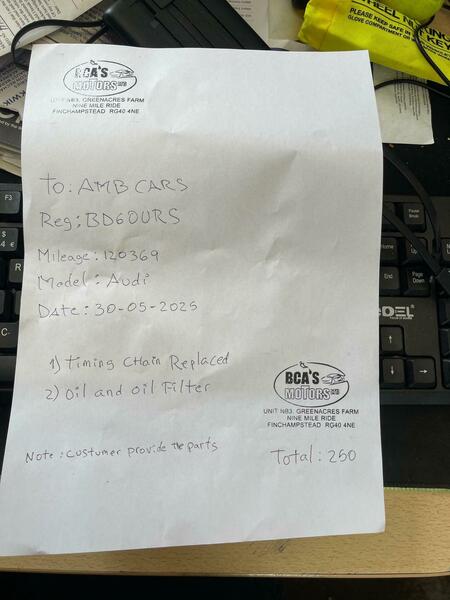 WHEEL NU
PLEASE KEEP SAFE IN
GLOVE COMPARTMENT O
KEY
BCA'S
MOTORS LTD
UNIT NB3, GREENACRES FARM
NINE MILE RIDE
FINCHAMPSTEAD RG40 4NE
To: AMB CARS
Reg; BD60URS
Mileage: 120369
Model: Audi
Date: 30-05-2025
1) Timing CHain Replaced
2) Oil and Oil Filter
BCA'S
MOTORS LTD
UNIT NB3. GREENACRES FARM
NINE MILE RIDE
FINCHAMPSTEAD RG40 4NE
Note: Custumer provide the parts
Total: 250
F3
$
4 €
R
C
Pause
Break
Home
Page
Up
End
Page
Down